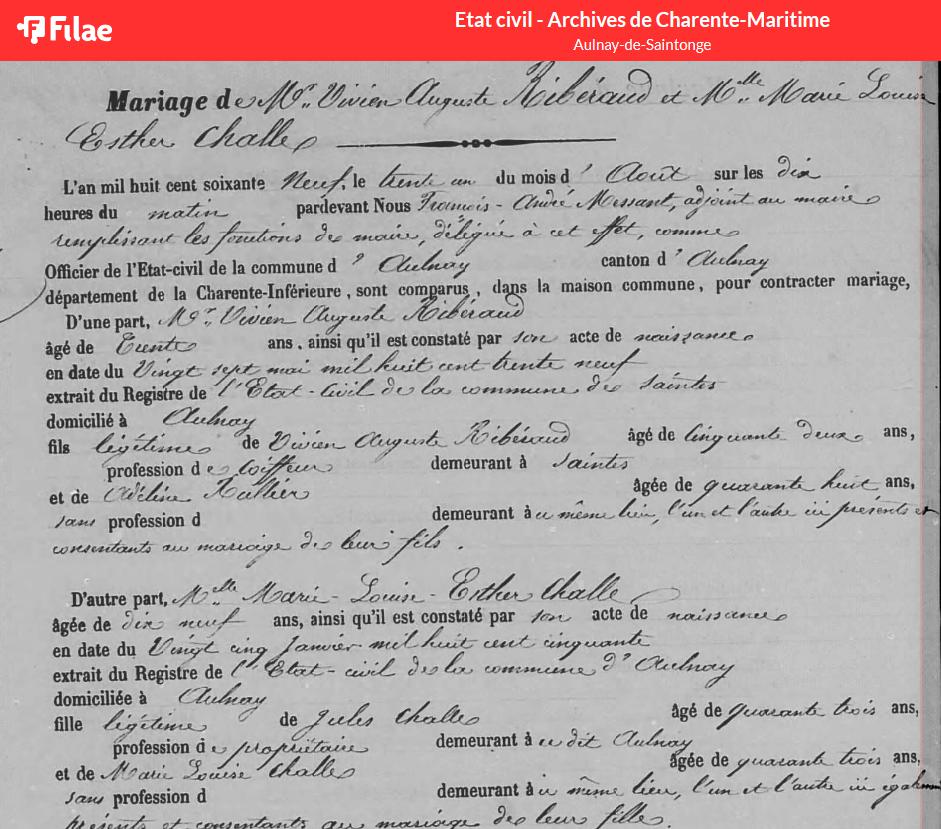 Filae
Etat civil - Archives de Charente-Maritime
Aulnay-de-Saintonge
Mariage de Mr. Vivien Auguste Ribéraud et Melle Marie Louise
Esther Challe
L'an mil huit cent soixante Neuf, le trente un du mois d' Août sur les dix
heures du matin pardevant Nous François - André Messant, adjoint au maire
remplissant les fonctions de maire, délégué à cet effet, comme
Officier de l'Etat-civil de la commune d' Aulnay canton d' Aulnay
département de la Charente-Inférieure, sont comparus, dans la maison commune, pour contracter mariage,
D'une part, Mr. Vivien Auguste Ribéraud
âgé de Trente ans, ainsi qu'il est constaté par son acte de naissance
en date du Vingt sept mai mil huit cent trente neuf
extrait du Registre de l'Etat-Civil de la commune de Saintes
domicilié à Aulnay
fils légitime de Vivien Auguste Ribéraud âgé de cinquante deux ans,
profession de Coiffeur demeurant à Saintes
et de Adéline Rullier âgée de quarante huit ans,
sans profession d demeurant à ce même lieu, l'un et l'autre ici présents et
consentants au mariage de leur fils.
D'autre part, Melle Marie - Louise - Esther Challe
âgée de dix neuf ans, ainsi qu'il est constaté par son acte de naissance
en date du Vingt cinq Janvier mil huit cent cinquante
extrait du Registre de l'Etat-civil de la commune d' Aulnay
domiciliée à Aulnay
fille légitime de Jules Challe âgé de quarante trois ans,
profession de propriétaire demeurant à ce dit Aulnay
et de Marie Louise Challe âgée de quarante trois ans,
sans profession d demeurant à ce même lieu, l'un et l'autre ici
présents et consentants au mariage de leur fille.